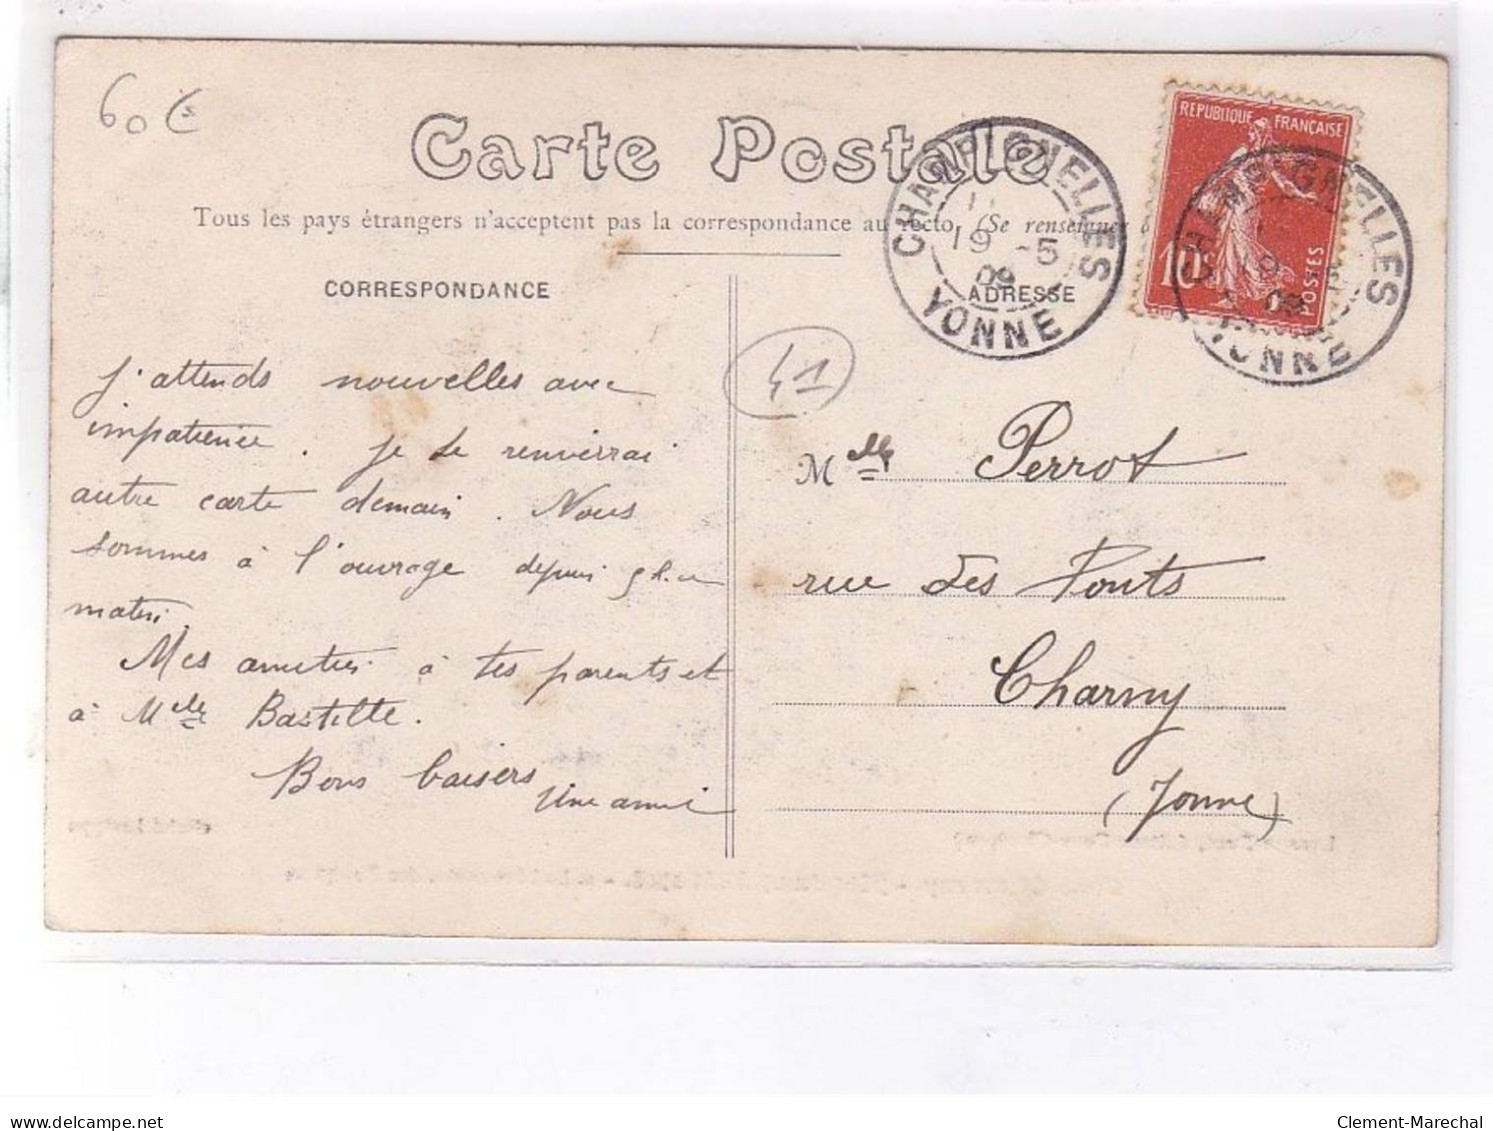 60 €
Carte Postale
Tous les pays étrangers n'acceptent pas la correspondance au recto. (Se renseigner
CORRESPONDANCE
ADRESSE
CHAMPIGNELLES
19 -5
09
YONNE
REPUBLIQUE FRANÇAISE
10c
POSTES
CHAMPIGNELLES
09
YONNE
41
J'attends nouvelles avec
impatience. Je te renverrai
autre carte demain. Nous
sommes à l'ouvrage depuis 5 h. ce
matin.
Mes amitiés à tes parents et
à Melle Bastille.
Bons baisers
Une amie
Melle Perrot
rue des Ponts
Charny
(Yonne)
delcampe.net
Clement-Marechal